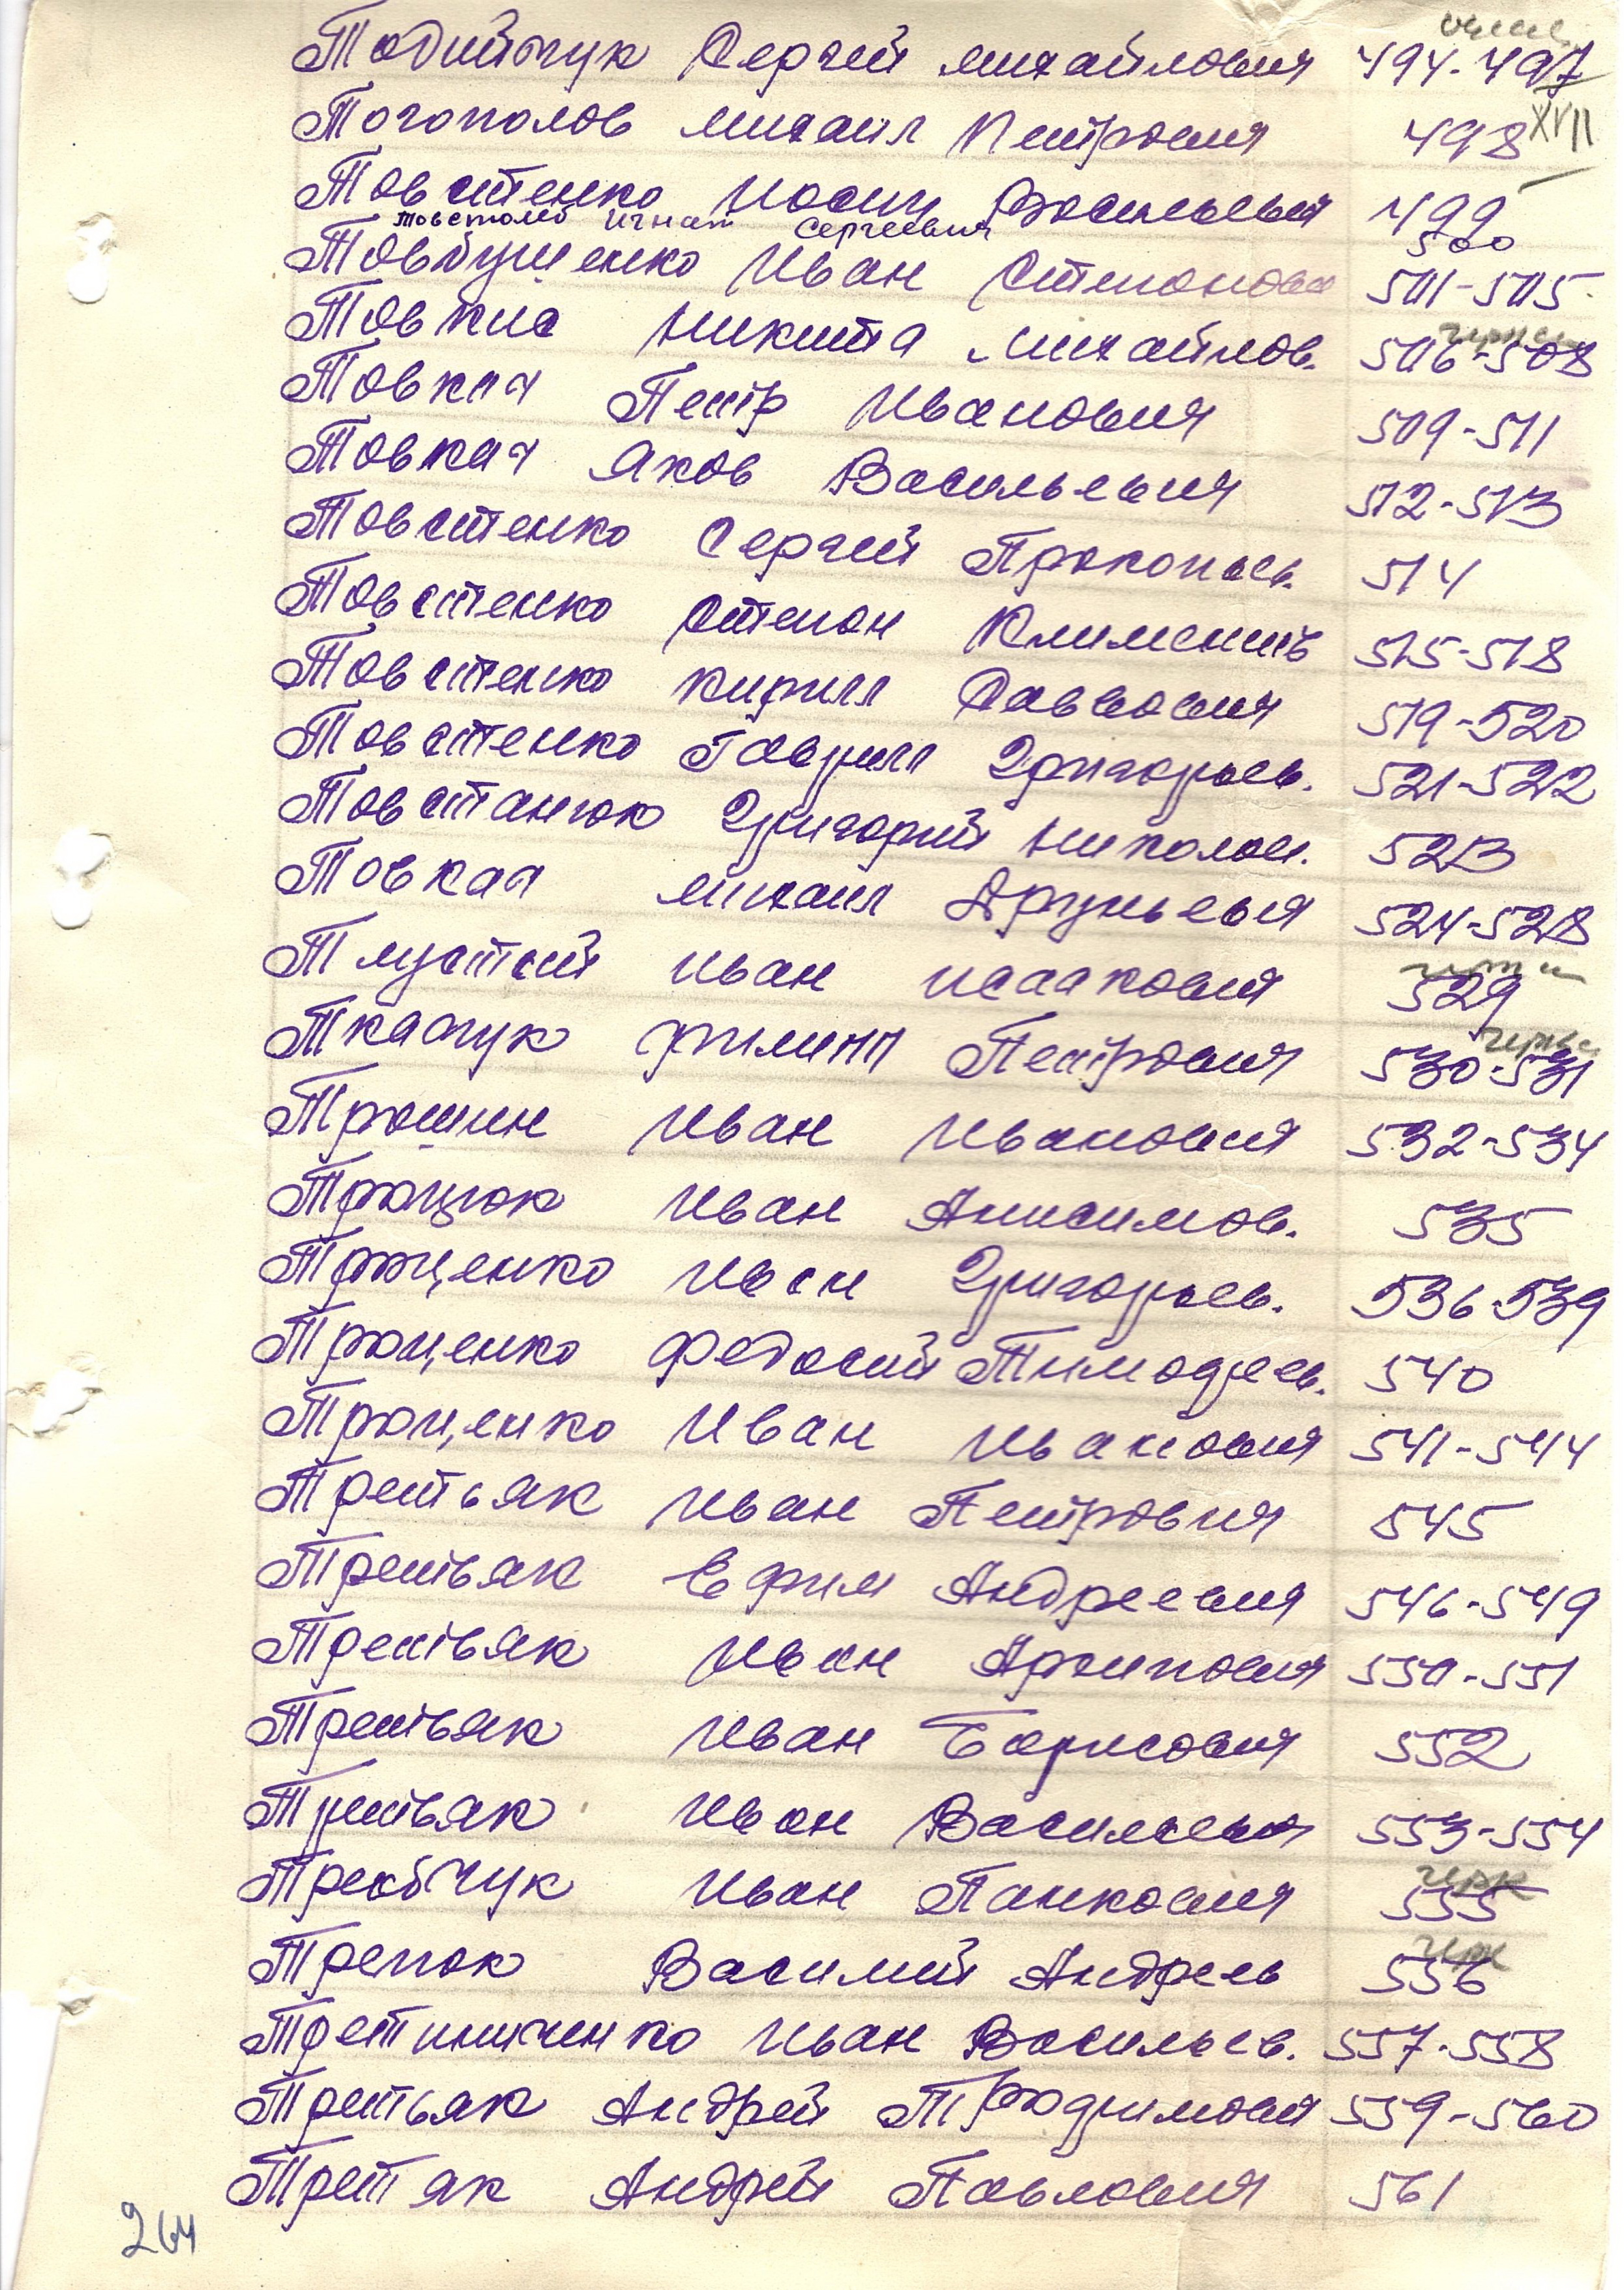 Тодийчук Сергей Михайлович 494-497
XVII
Тогополов Михаил Петрович 498
Товстенко Иосип Васильевич 499
Товстолед Игнат Сергеевич 500
Товбушенко Иван Степанович 501-505
Товкис Никита Михайлов. 506-508
Товкач Петр Иванович 509-511
Товкач Яков Васильевич 512-513
Товстенко Сергей Прокопьев. 514
Товстенко Степан Климентьев 515-518
Товстенко Кирилл Саввович 519-520
Товстенко Гаврил Григорьев. 521-522
Товстанюк Григорий Николаев. 523
Товкач Михаил Юрьевич 524-528
Тлустий Иван Исаакович 529
Ткачук Филипп Петрович 530-531
Трошин Иван Иванович 532-534
Троцюк Иван Анисимов. 535
Троценко Иван Григорьев. 536-539
Троценко Федосий Тимофеев. 540
Троценко Иван Иванович 541-544
Третьяк Иван Петрович 545
Третьяк Ефим Андреевич 546-549
Третьяк Иван Архипович 550-551
Третьяк Иван Борисович 552
Третьяк Иван Васильевич 553-554
Требчук Иван Панкович 555
Трепок Василий Андреев 556
Третиниченко Иван Васильев. 557-558
Третьяк Андрей Трофимович 559-560
Третяк Андрей Павлович 561
264